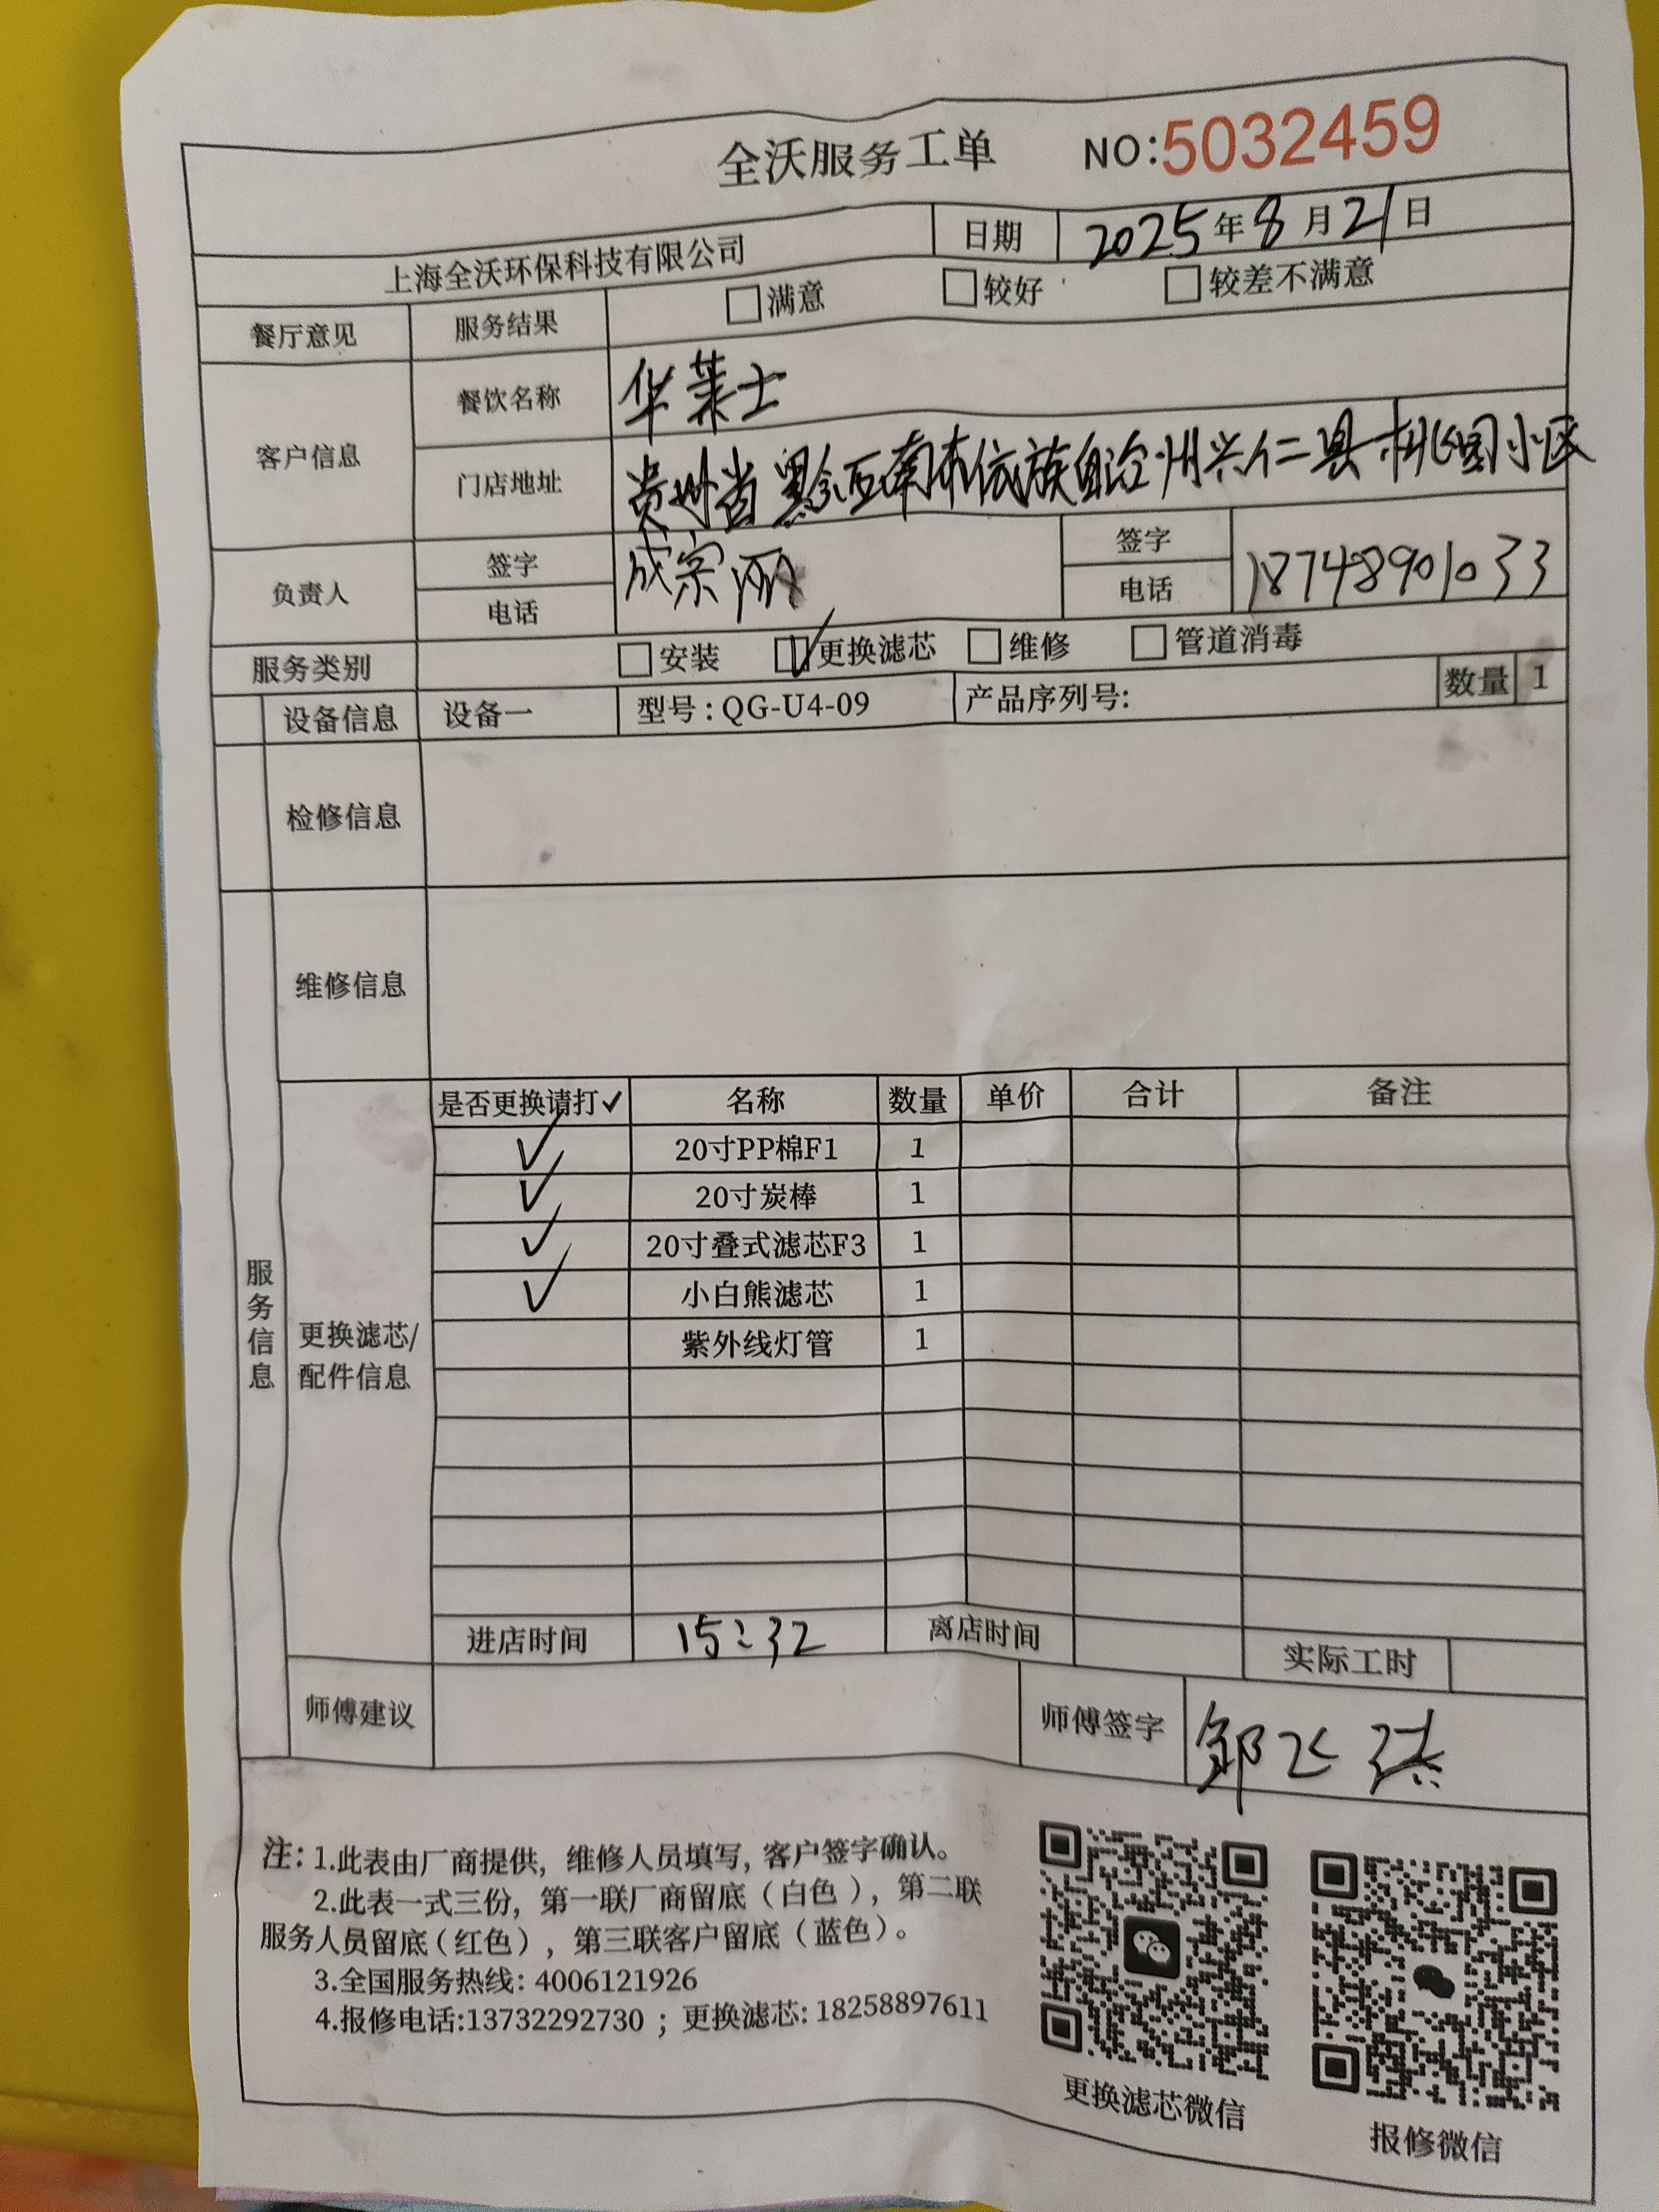 全沃服务工单 NO:5032459
上海全沃环保科技有限公司 日期 2025年8月21日
餐厅意见 服务结果 满意 较好 较差不满意
客户信息 餐饮名称 华莱士
门店地址 贵州省黔西南布依族自治州兴仁县桃园小区
负责人 签字 成宗丽 签字
电话 电话 18748901033
服务类别 安装 更换滤芯 维修 管道消毒
设备信息 设备一 型号:QG-U4-09 产品序列号: 数量 1
检修信息
维修信息
服务信息
更换滤芯/配件信息
是否更换请打✓ 名称 数量 单价 合计 备注
✓ 20寸PP棉F1 1
✓ 20寸炭棒 1
✓ 20寸叠式滤芯F3 1
✓ 小白熊滤芯 1
紫外线灯管 1
进店时间 15:32 离店时间 实际工时
师傅建议 师傅签字 邹
注: 1.此表由厂商提供, 维修人员填写, 客户签字确认。
2.此表一式三份, 第一联厂商留底（白色）, 第二联
服务人员留底(红色）, 第三联客户留底（蓝色）。
3.全国服务热线: 4006121926
4.报修电话:13732292730 ; 更换滤芯: 18258897611
更换滤芯微信
报修微信